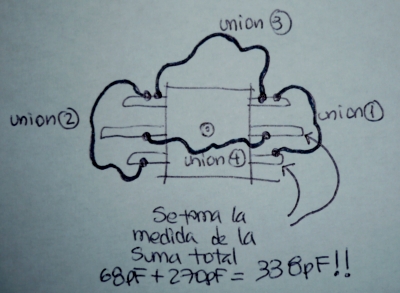 union ③
union ②
union ①
②
union ④
Se toma la
medida de la
Suma total
68pF + 270pF = 338pF!!